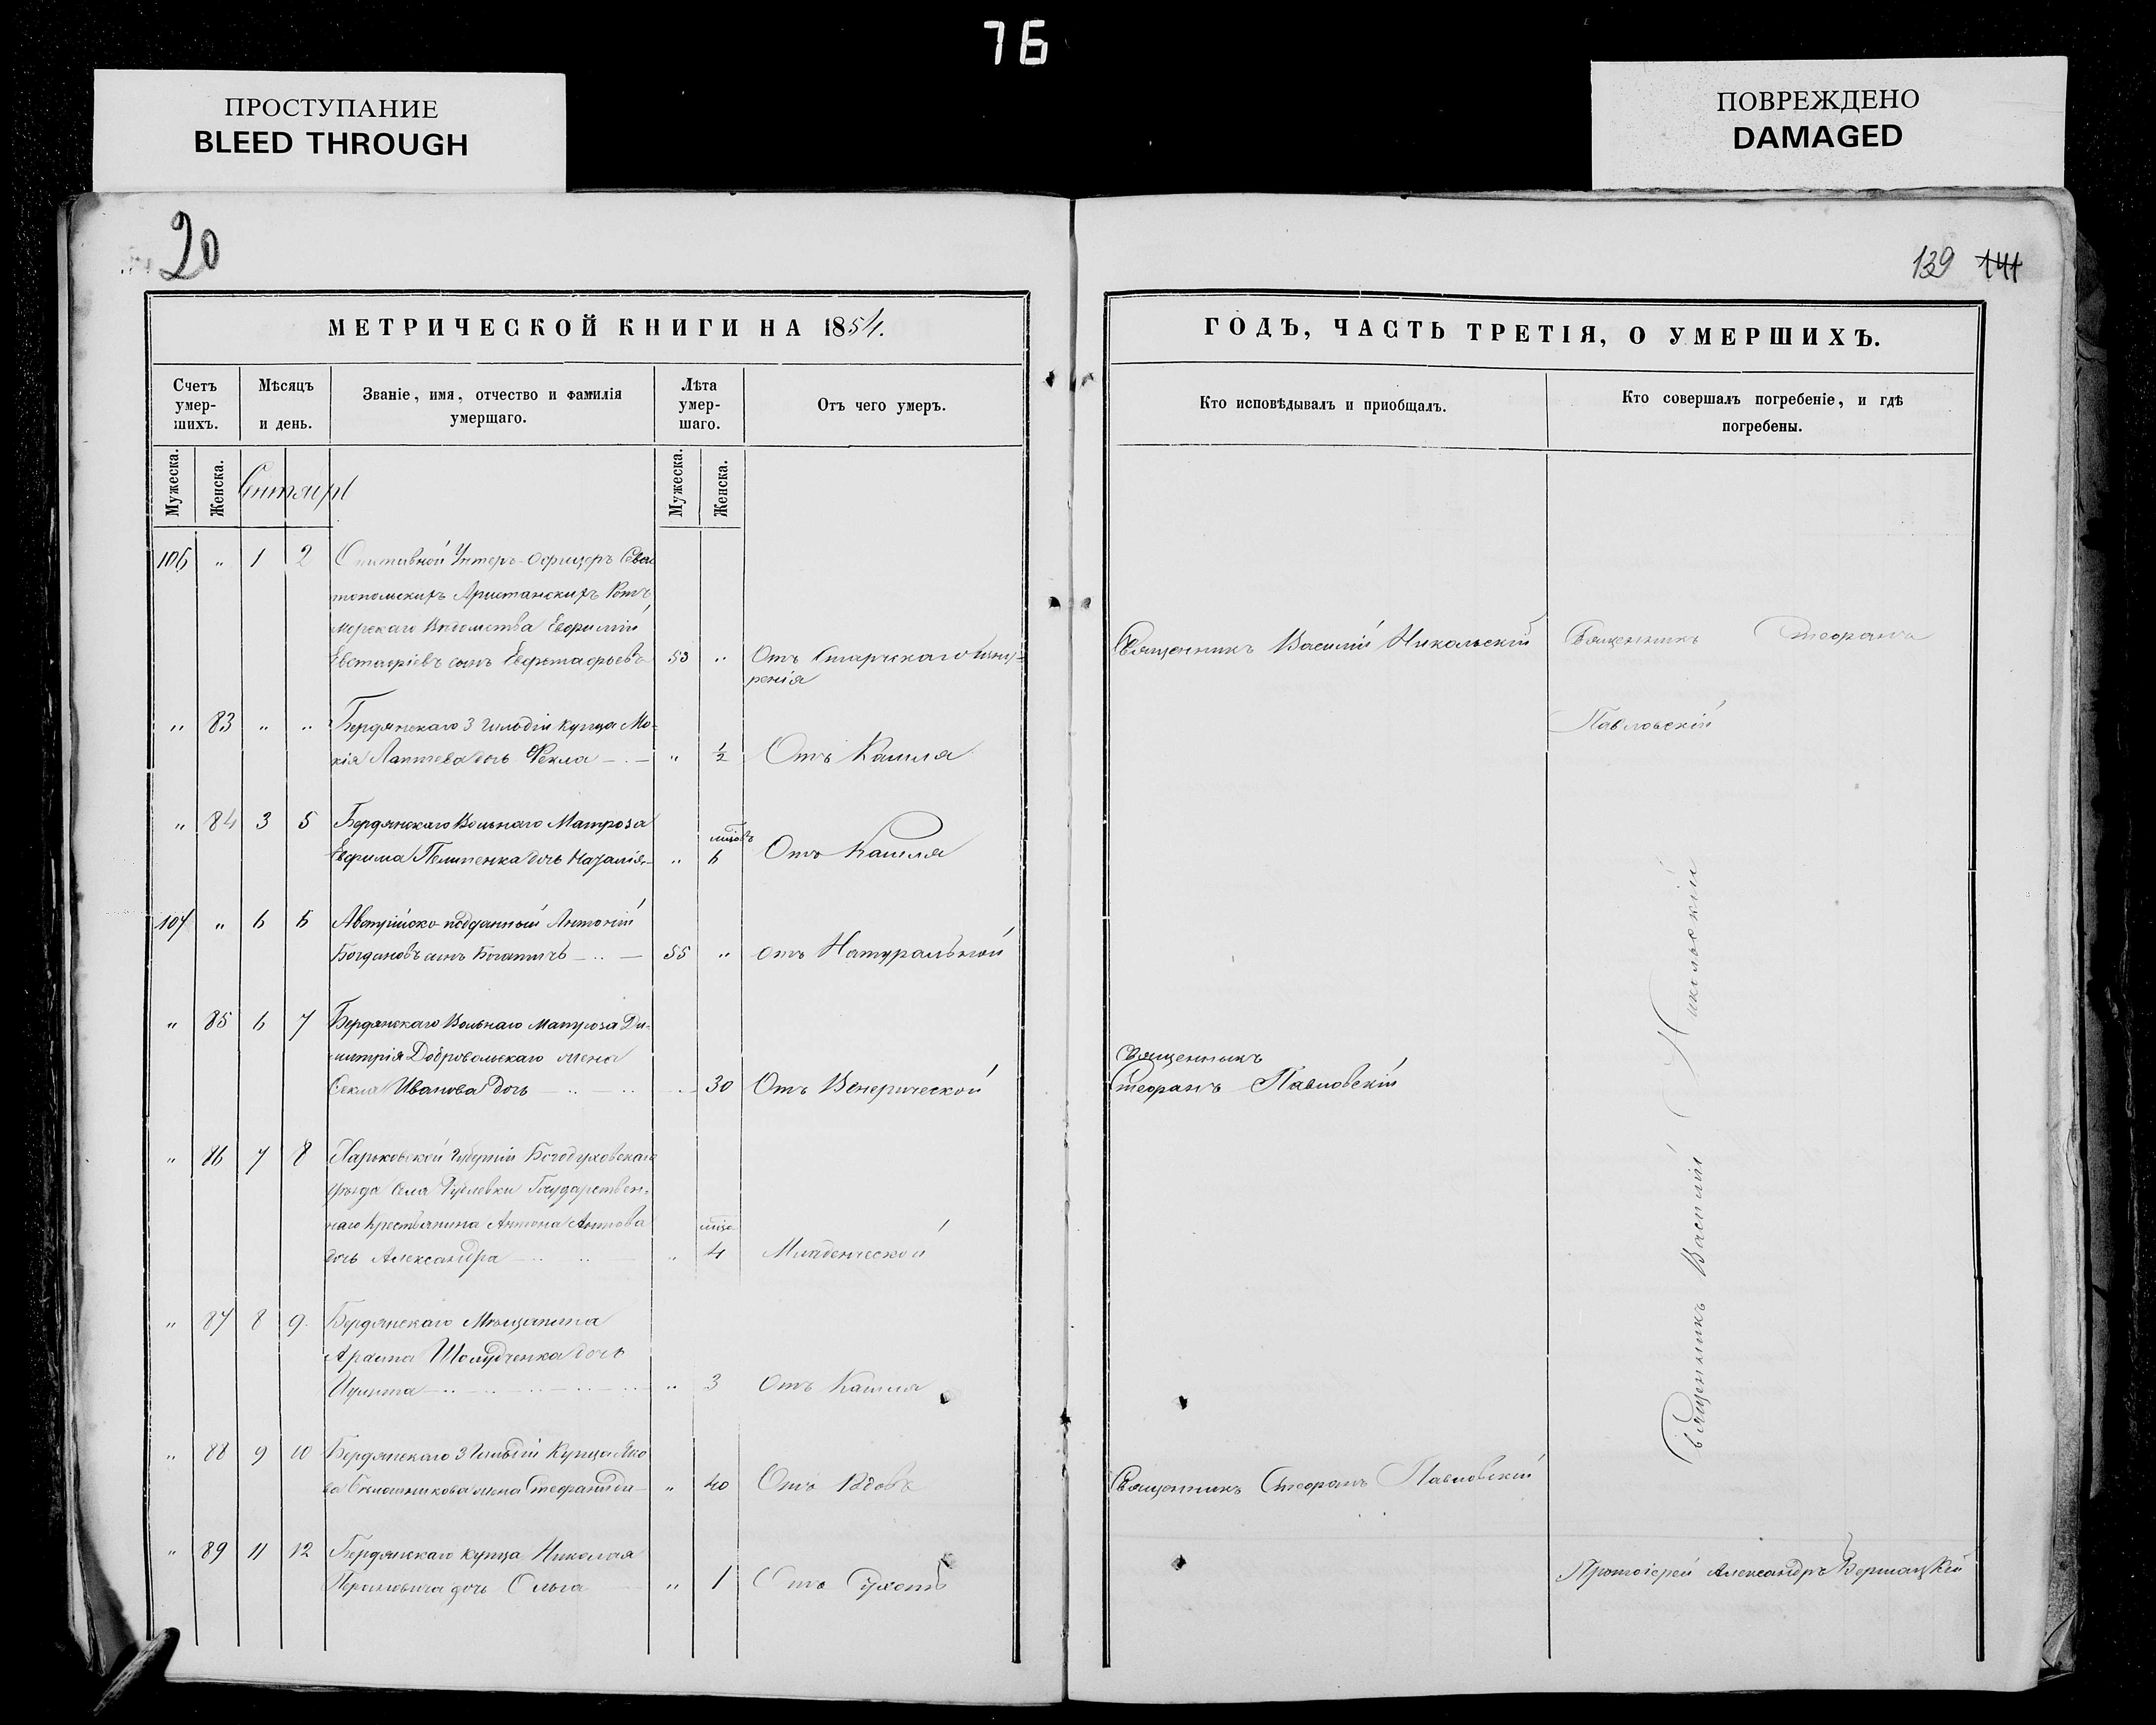 76
ПРОСТУПАНИЕ
BLEED THROUGH
ПОВРЕЖДЕНО
DAMAGED
20
139 141
МЕТРИЧЕСКОЙ КНИГИ НА 1854.
ГОДЪ, ЧАСТЬ ТРЕТІЯ, О УМЕРШИХЪ.
Счетъ умер-шихъ.
Мѣсяцъ и день.
Званіе, имя, отчество и фамилія умершаго.
Лѣта умер-шаго.
Отъ чего умеръ.
Кто исповѣдывалъ и приобщалъ.
Кто совершалъ погребеніе, и гдѣ погребены.
Мужеска. Женска.
Сентябрь
Мужеска. Женска.
106 " 1 2 Унтеръ-Офицеръ Сева
стопольскихъ Арестанскихъ Ротъ
Морскаго Вѣдомства Ефримій
Евстафіевъ сынъ 53 " Отъ Старческаго изну-
ренія
Священникъ Василій Никольскій
Священникъ Стефанъ
Павловскій
" 83 " " Бердянскаго 3 Гильдіи купца Мо-
кія Лаптева дочь Фекла " ½ Отъ Кашля
" 84 3 5 Бердянскаго Вольнаго Матроза
Ефима дочь Наталія " 6 Отъ Кашля
107 " 6 6 Австрійско-подданный Антоній
Богдановъ сынъ 55 " отъ Натуральной
" 85 6 7 Бердянскаго Вольнаго Матроза Ди-
митрія Добровольскаго жена
Фекла Иванова дочь 30 Отъ Венерической
Священникъ
Стефанъ Павловскій
" 86 7 8 Харьковской Губерніи Богодуховскаго
уѣзда Села Рублевки Государствен-
наго Крестьянина Антона
дочь Александра " 4 Младенческой
" 87 8 9 Бердянскаго Мѣщанина
дочь
" 3 Отъ Кашля
" 88 9 10 Бердянскаго 3 Гильдіи Купца Яко
ва жена Стефанида " 40 Отъ
Священникъ Стефанъ Павловскій
Священникъ Василій Никольскій
" 89 11 12 Бердянскаго купца Николая
дочь Ольга " 1 Отъ
Протоіерей Александръ